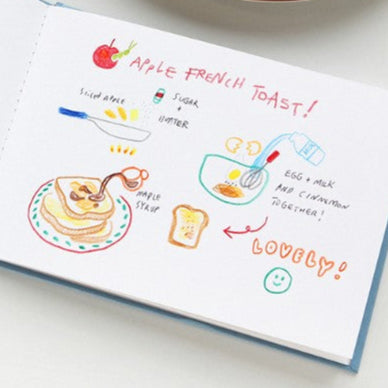 APPLE FRENCH TOAST!
SLICED APPLE
SUGAR
+
BUTTER
EGG + MILK
AND CINNAMON
TOGETHER!
MAPLE
SYRUP
LOVELY!